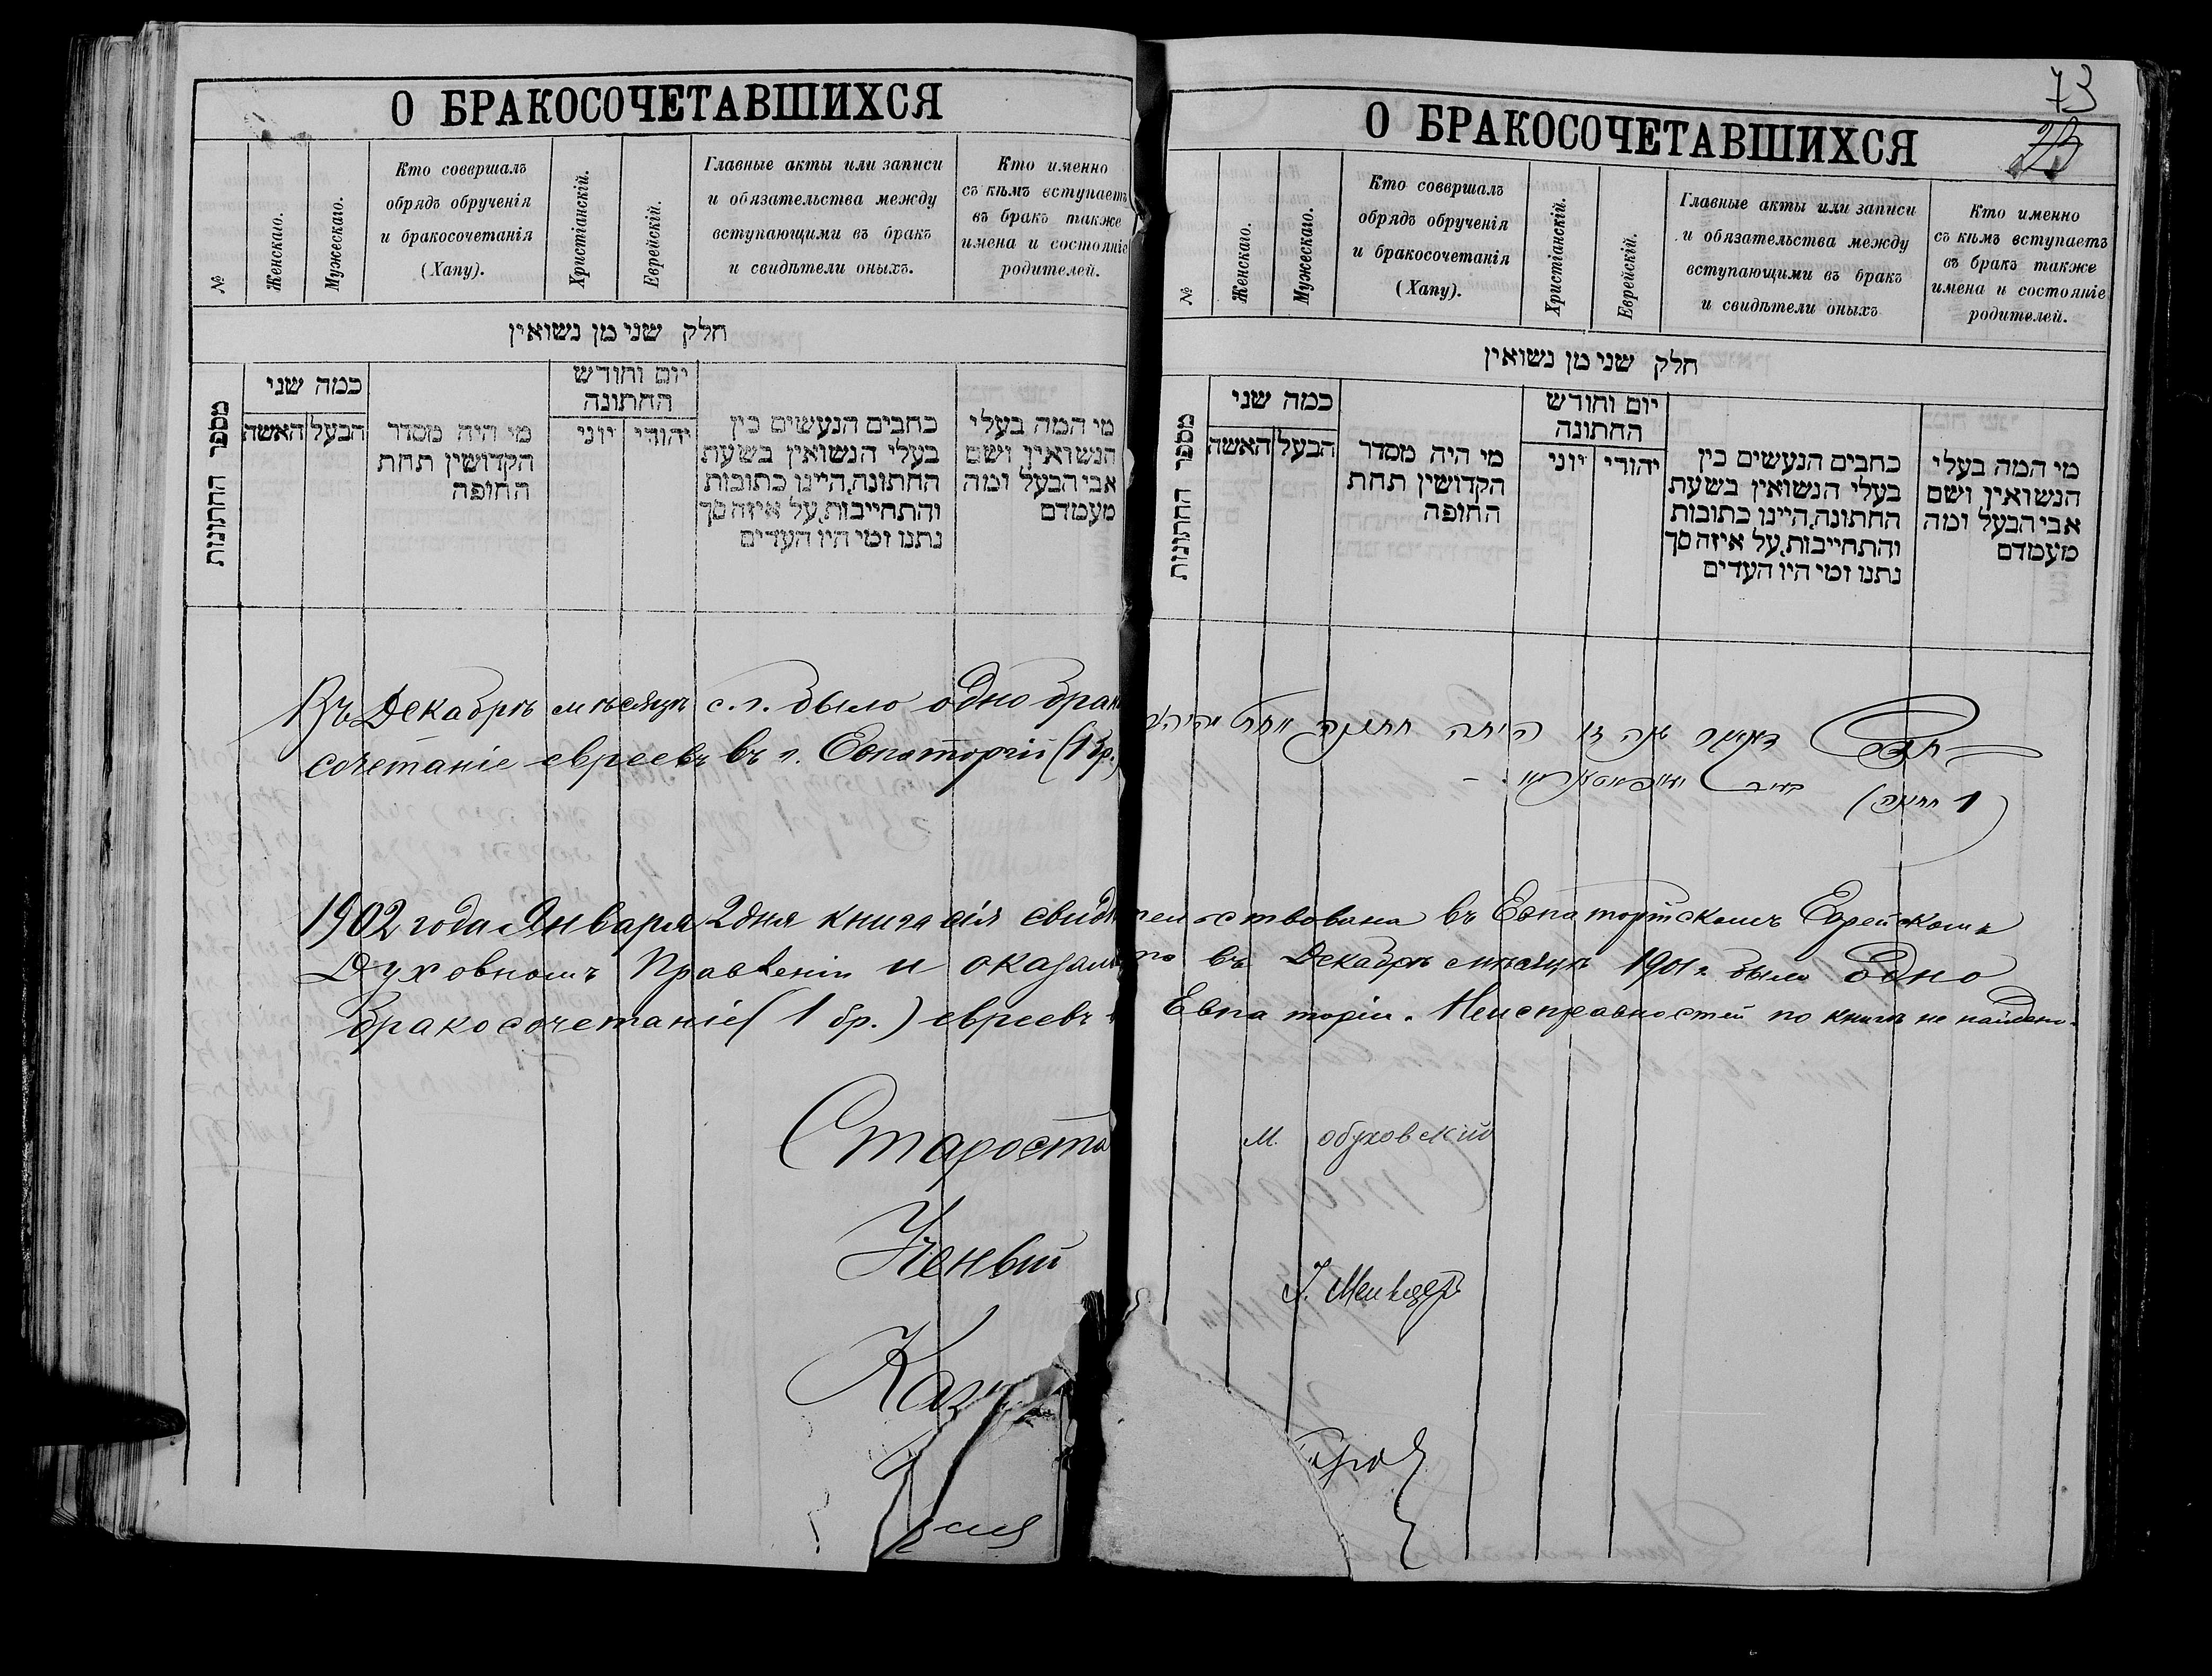 О БРАКОСОЧЕТАВШИХСЯ
№
Женскаго.
Мужескаго.
Кто совершалъ
обрядъ обрученія
и бракосочетанія
(Хапу).
Христіанскій.
Еврейскій.
Главные акты или записи
и обязательства между
вступающими въ бракъ
и свидѣтели оныхъ.
Кто именно
съ кѣмъ вступаетъ
въ бракъ также
имена и состояніе
родителей.
חלק שני מן נשואין
מספר החתונות
כמה שני
הבעל
האשה
מי היה מסדר
הקדושין תחת
החופה
יום וחודש
החתונה
יהודי
יוני
כתבים הנעשים בין
בעלי הנשואין בשעת
החתונה,היינו כתובות
והתחייבות,על איזה סך
נתנו ומי היו העדים
מי המה בעלי
הנשואין ושם
אבי הבעל ומה
מעמדם
Въ Декабрѣ мѣсяцѣ с.г. было одно брако
сочетаніе евреевъ въ г. Евпаторіи (1 бр.)
73
О БРАКОСОЧЕТАВШИХСЯ
№
Женскаго.
Мужескаго.
Кто совершалъ
обрядъ обрученія
и бракосочетанія
(Хапу).
Христіанскій.
Еврейскій.
Главные акты или записи
и обязательства между
вступающими въ бракъ
и свидѣтели оныхъ
Кто именно
съ кѣмъ вступаетъ
въ бракъ также
имена и состояніе
родителей.
חלק שני מן נשואין
מספר החתונות
כמה שני
הבעל
האשה
מי היה מסדר
הקדושין תחת
החופה
יום וחודש
החתונה
יהודי
יוני
כתבים הנעשים בין
בעלי הנשואין בשעת
החתונה,היינו כתובות
והתחייבות,על איזה סך
נתנו ומי היו העדים
מי המה בעלי
הנשואין ושם
אבי הבעל ומה
מעמדם
היתה חתונה
(1 חתונה)
1902 года Января 2 дня книга сія свидѣтельствована въ Евпаторійскомъ Еврейскомъ
Духовномъ Правленіи и оказалось что въ Декабрѣ мѣсяцѣ 1901 г. было Одно
бракосочетаніе (1 бр.) евреевъ в Евпаторіи. Неисправностей по книгѣ не найдено.
Староста М. Обуховскій
Ученый
Каз